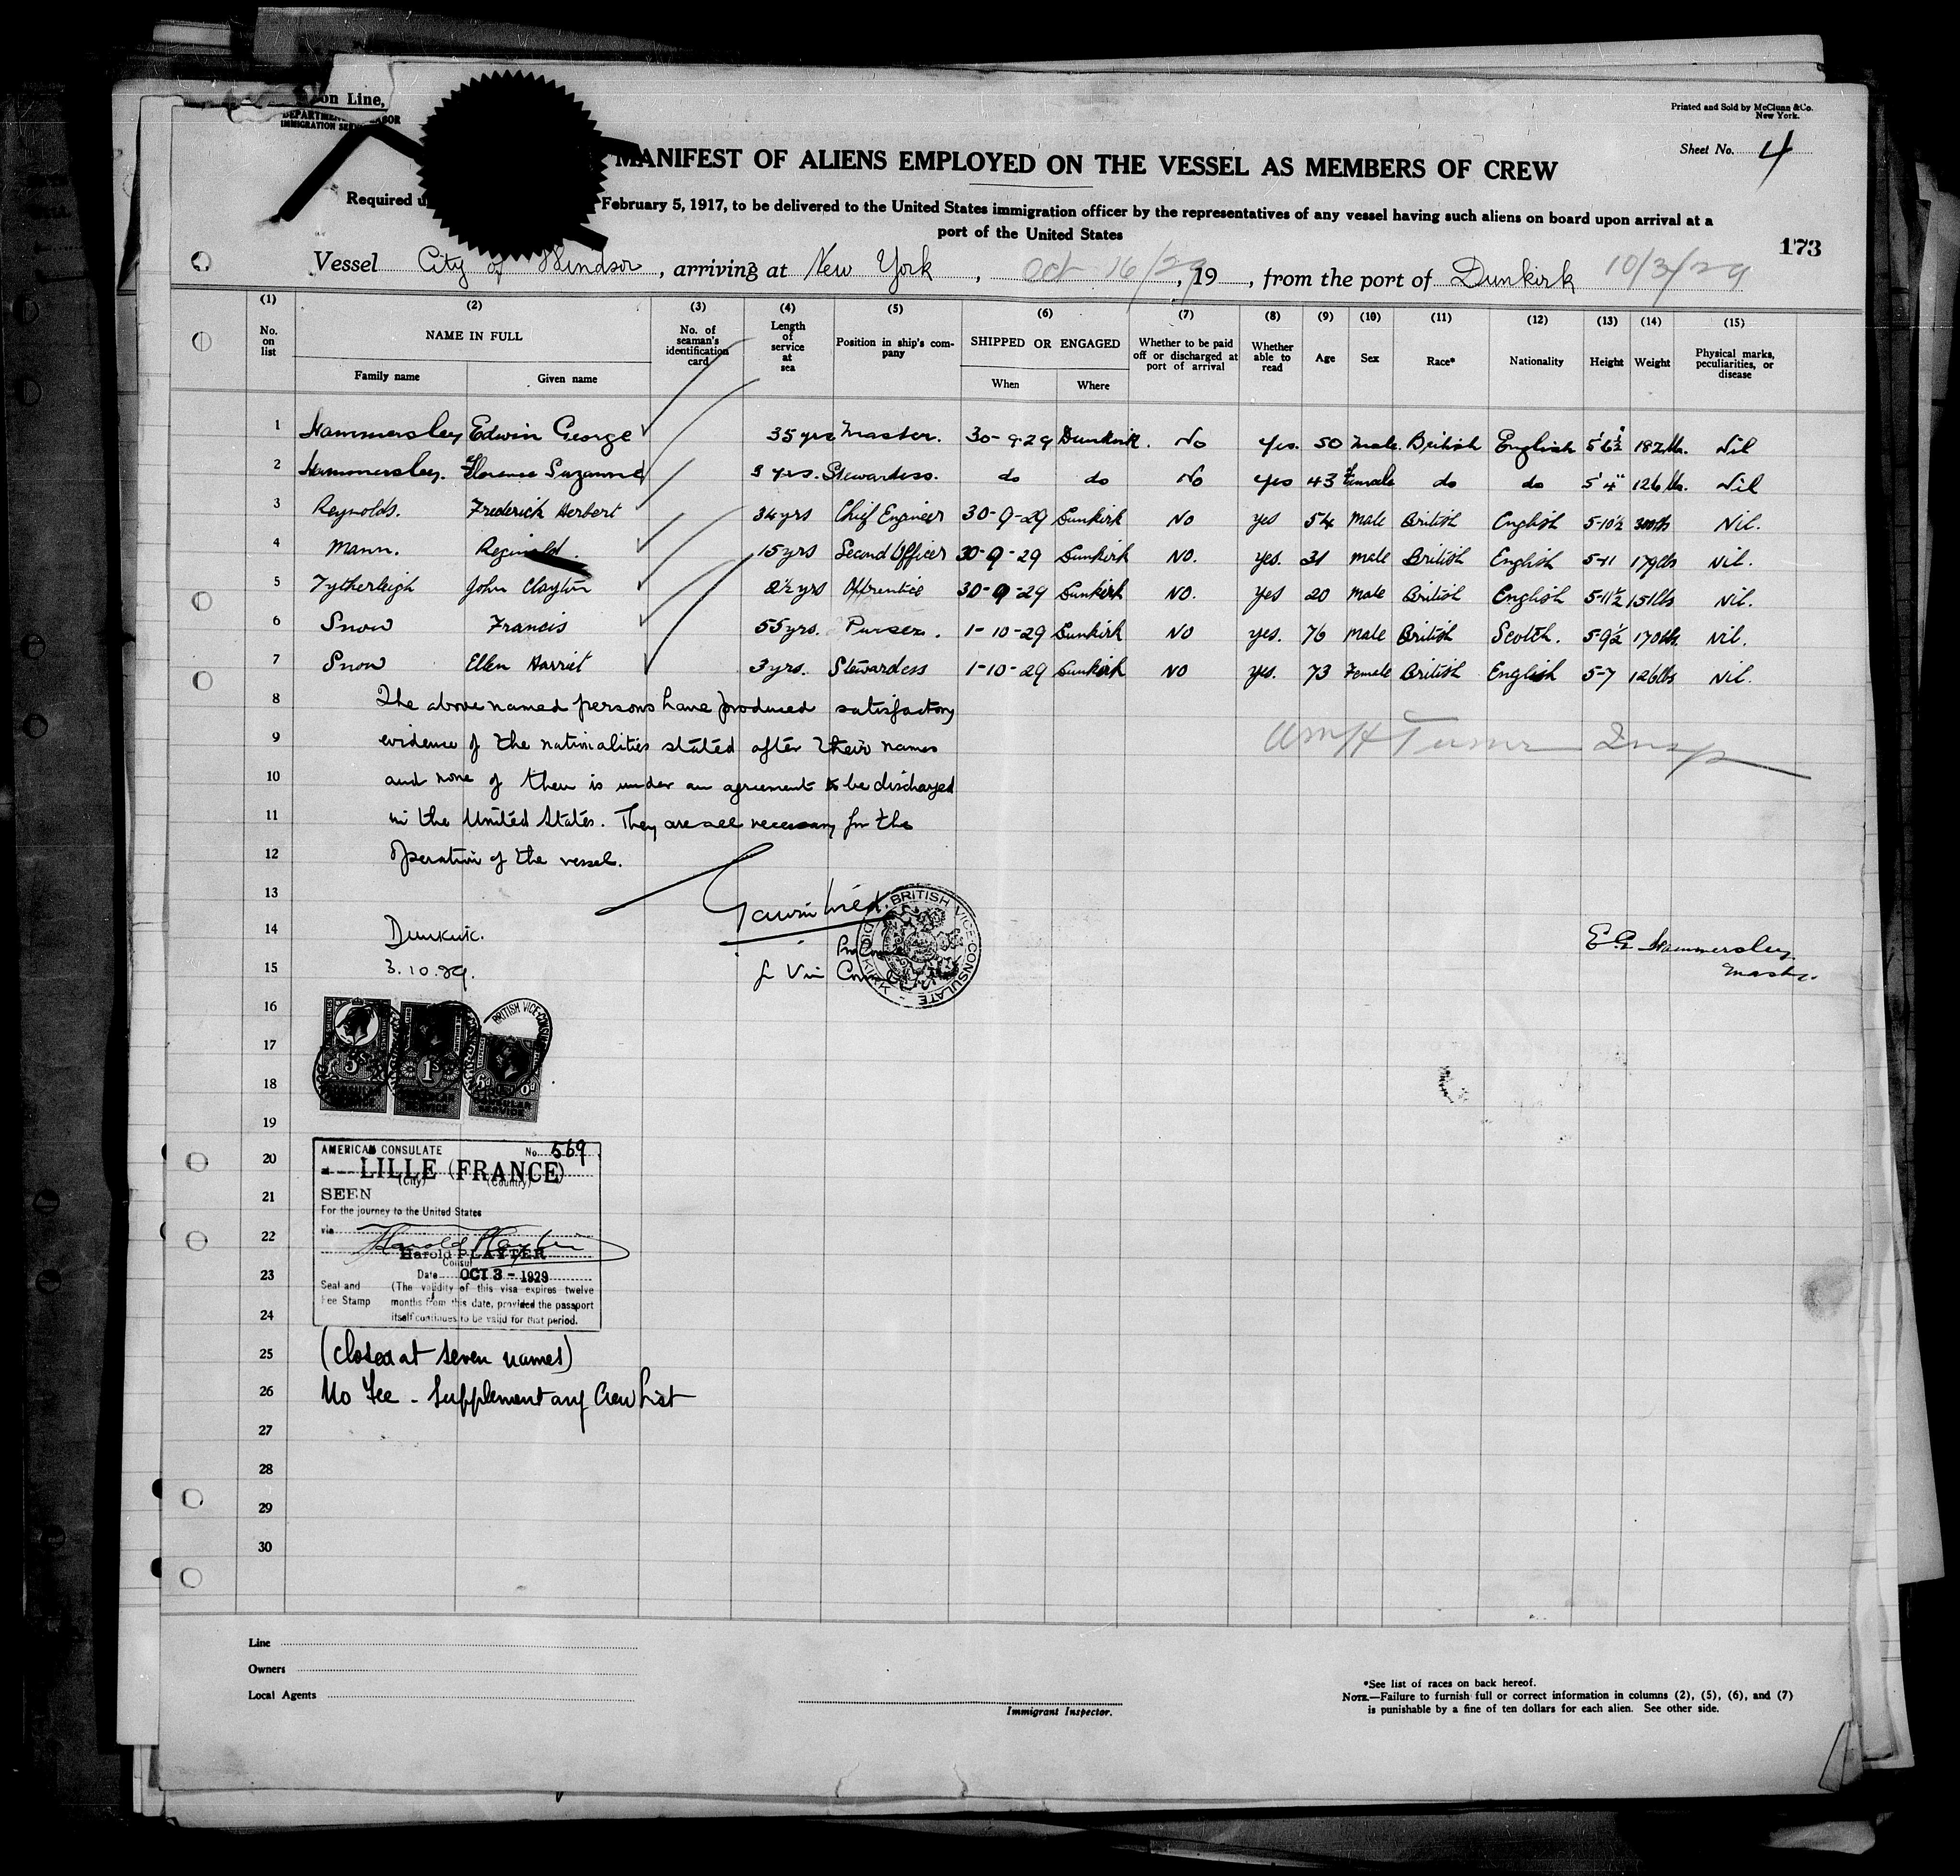 on Line,
DEPARTMENT LABOR
IMMIGRATION SER
Printed and Sold by McClunn & Co.
New York.
Sheet No. 4
MANIFEST OF ALIENS EMPLOYED ON THE VESSEL AS MEMBERS OF CREW
Required u February 5, 1917, to be delivered to the United States immigration officer by the representatives of any vessel having such aliens on board upon arrival at a
port of the United States
173
Vessel City of Windsor, arriving at New York, Oct 16/29, 19, from the port of Dunkirk 10/3/29
(1) (2) (3) (4) (5) (6) (7) (8) (9) (10) (11) (12) (13) (14) (15)
No. on list NAME IN FULL No. of seaman's identification card Length of service at sea Position in ship's company SHIPPED OR ENGAGED Whether to be paid off or discharged at port of arrival Whether able to read Age Sex Race* Nationality Height Weight Physical marks, peculiarities, or disease
Family name Given name When Where
1 Hammersley Edwin George 35 yrs Master. 30-9-29 Dunkirk. No Yes. 50 Male. British English 5'6½" 182 lbs. Nil
2 Hammersley. Florence Suzanne 3 yrs. Stewardess. do do No Yes 43 Female do do 5'4" 126 lbs. Nil
3 Reynolds. Frederick Herbert 34 yrs Chief Engineer 30-9-29 Dunkirk NO yes 54 Male British English 5-10½ Nil.
4 Mann. Reginald. 15 yrs Second Officer 30-9-29 Dunkirk NO. yes. 31 Male British English 5-11 179 lbs Nil.
5 Tytherleigh John Clayton 2½ yrs Apprentice 30-9-29 Dunkirk NO. yes 20 Male British English 5-11½ 151 lbs Nil.
6 Snow Francis 55 yrs. Purser. 1-10-29 Dunkirk NO yes. 76 Male British Scotch. 5-9½ 170 lbs. Nil.
7 Snow Ellen Harriet 3 yrs. Stewardess 1-10-29 Dunkirk NO yes. 73 Female British English 5-7 126 lbs Nil.
8 The above named persons have produced satisfactory
9 evidence of the nationalities stated after their names
10 and none of them is under an agreement to be discharged
11 in the United States. They are all necessary for the
12 operation of the vessel.
13
14 Dunkirk.
15 3.10.29.
BRITISH VICE-CONSULATE - DUNKIRK
E.G. Hammersley
Master.
16
17
18
19
BRITISH VICE-CONSUL
5s 1s 6d
CONSULAR SERVICE
20 AMERICAN CONSULATE No. 569
at LILLE (FRANCE)
(City) (Country)
21 SEEN
For the journey to the United States
22 via
Harold PLAYTER
Consul
23 Date OCT 3 - 1929
Seal and Fee Stamp (The validity of this visa expires twelve
months from this date, provided the passport
24 itself continues to be valid for that period.
25 (Closed at seven names)
26 No Fee - Supplementary Crew List
27
28
29
30
Line
Owners
Local Agents
Immigrant Inspector.
*See list of races on back hereof.
NOTE.—Failure to furnish full or correct information in columns (2), (5), (6), and (7)
is punishable by a fine of ten dollars for each alien. See other side.